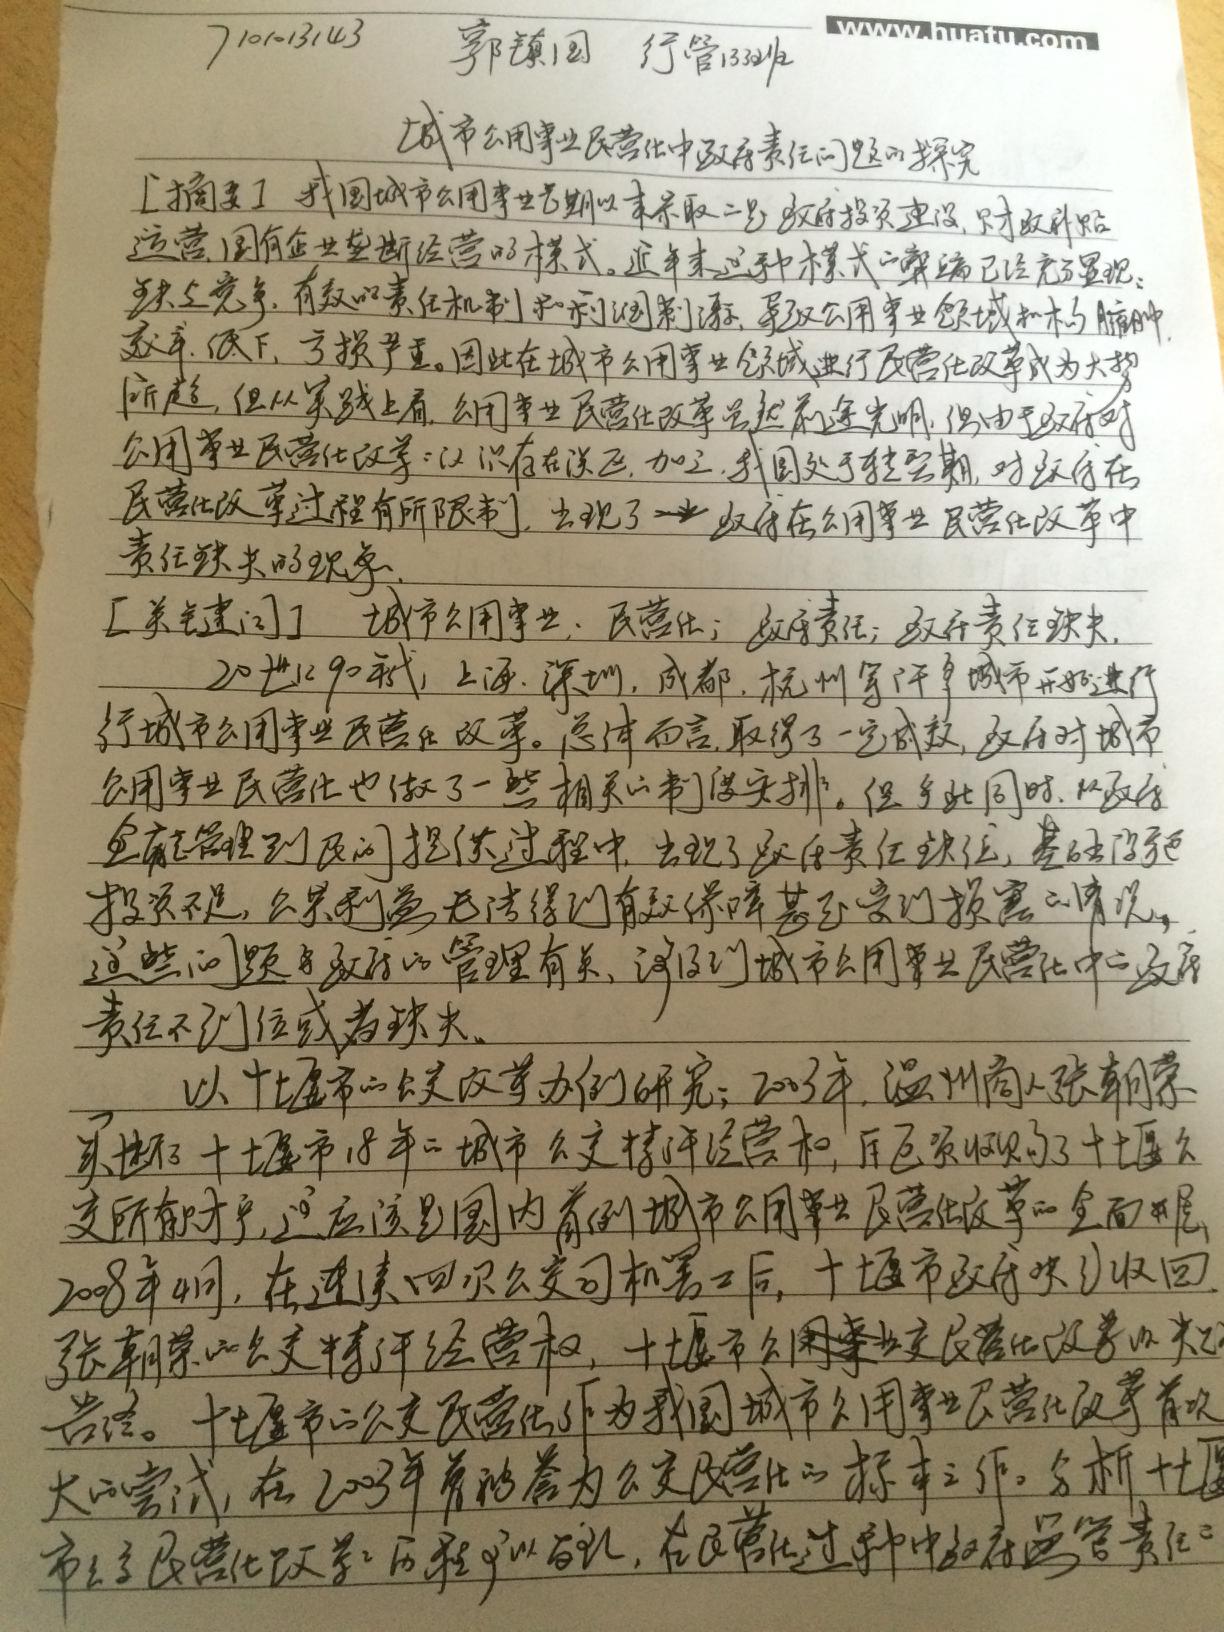 www.huatu.com
7101013143 郭镇国 行管1332班
城市公用事业民营化中政府责任问题的探究
[摘要] 我国城市公用事业长期以来采取的是政府投资建设、财政补贴
运营、国有企业垄断经营的模式。近年来这种模式的弊端已经充分显现:
缺乏竞争、有效的责任机制和利润刺激,导致公用事业领域机构臃肿、
效率低下、亏损严重。因此在城市公用事业领域进行民营化改革成为大势
所趋,但从实践上看,公用事业民营化改革虽然前途光明,但由于政府对
公用事业民营化改革的认识存在误区,加之我国处于转型期,对政府在
民营化改革过程有所限制,出现了政府在公用事业民营化改革中
责任缺失的现象。
[关键词] 城市公用事业;民营化;政府责任;政府责任缺失。
20世纪90年代,上海、深圳、成都、杭州等许多城市开始进行
行城市公用事业民营化改革。总体而言,取得了一定成效,政府对城市
公用事业民营化也做了一些相关的制度安排。但与此同时,从政府
全能管理到民间提供过程中,出现了政府责任缺位,基础设施
投资不足,公众利益无法得到有效保障甚至受到损害的情况。
这些问题与政府的管理有关,涉及到城市公用事业民营化中的政府
责任不到位或者缺失。
以十堰市的公交改革为例研究:2003年,温州商人张朝荣
买断了十堰市18年的城市公交特许经营权,用巨资收购了十堰公
交所有财产,这应该是国内首例城市公用事业民营化改革的全面开展,
2008年4月,在连续四次公交司机罢工后,十堰市政府决定收回
张朝荣的公交特许经营权,十堰市公交民营化改革以失败
告终。十堰市的公交民营化作为我国城市公用事业民营化改革首次
大的尝试,在2003年曾被誉为公交民营化的标本之作。分析十堰
市公交民营化改革的历程可以发现,在民营化过程中政府监管责任的